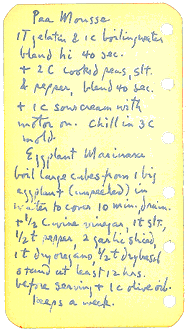 Pea Mousse
1T gelatin & 1c boiling water
blend hi 40 sec.
+ 2C cooked peas, slt.
& pepper, blend 40 sec.
+ 1c sour cream with
motor on. Chill in 3C
mold
Eggplant Marinara
boil large cubes from 1 big
eggplant (unpeeled) in
water to cover 10 min. drain.
+ 1/2 c wine vinegar, 1t slt.,
1/2t pepper, 2 garlic sliced,
1t dry oregano, 1/2t dry basil
stand at least 12 hrs.
before serving + 1c olive oil.
keeps a week.